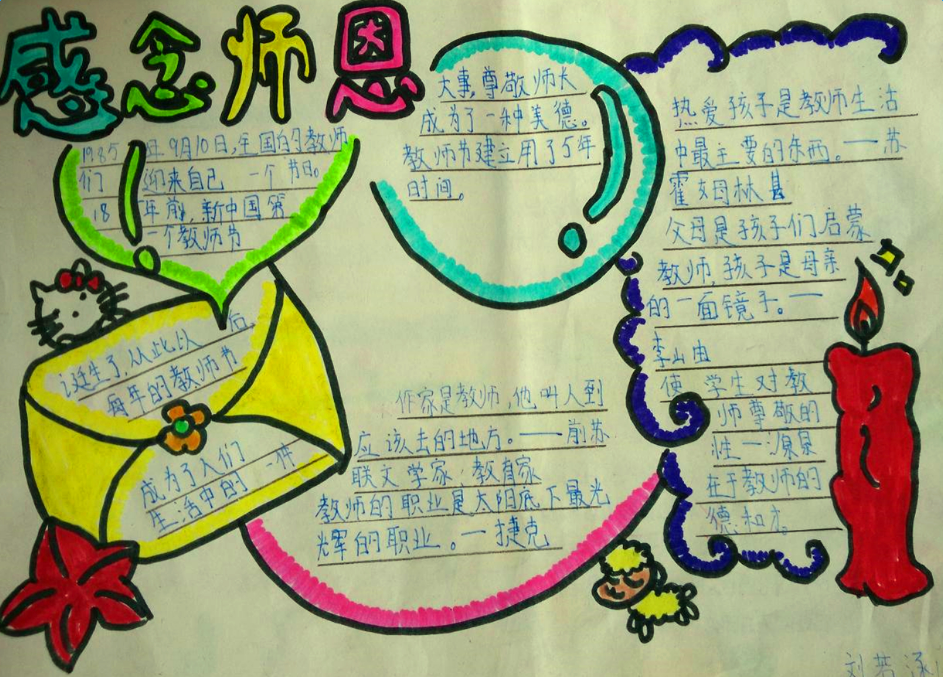 感念师恩
1985年9月10日,全国的教师
们迎来自己一个节日。
18年前,新中国第
一个教师节
诞生了从此以后
每年的教师节
成为了人们
生活中的一件
大事,尊敬师长
成为了一种美德。
教师节建立用了5年
时间。
作家是教师,他叫人到
应该去的地方。——前苏
联文学家,教育家
教师的职业是太阳底下最光
辉的职业。—捷克
热爱孩子是教师生活
中最主要的东西。——苏
霍姆林
父母是孩子们启蒙
教师,孩子是母亲
的一面镜子。——
李山由
使学生对教
师尊敬的
惟一源泉
在于教师的
德和才。
刘若